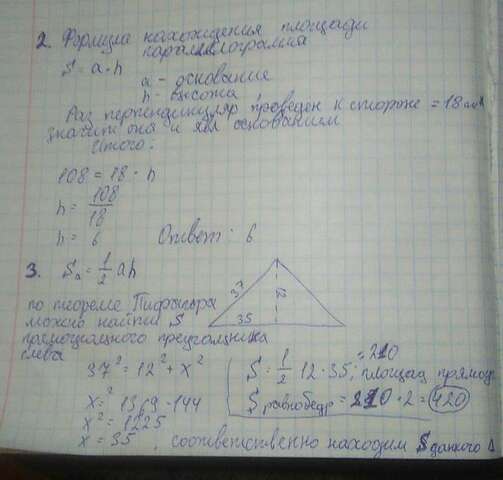 2. Формула нахождения площади
параллелограмма
S = a · h
a - основание
h - высота
Раз перпендикуляр проведен к стороне = 18 см
значит она и явл основанием
Итого:
108 = 18 · h
h = 108/18
h = 6 Ответ: 6
3. S△ = 1/2 ah
по теореме Пифагора
можно найти S
прямоугольного треугольника
слева
37
12
35
37² = 12² + x²
x² = 1369 - 144
x² = 1225
x = 35
S = 1/2 12 · 35 = 210, площад прямоуг
S равнобедр = 210 · 2 = 420
, соответственно находим S данного △